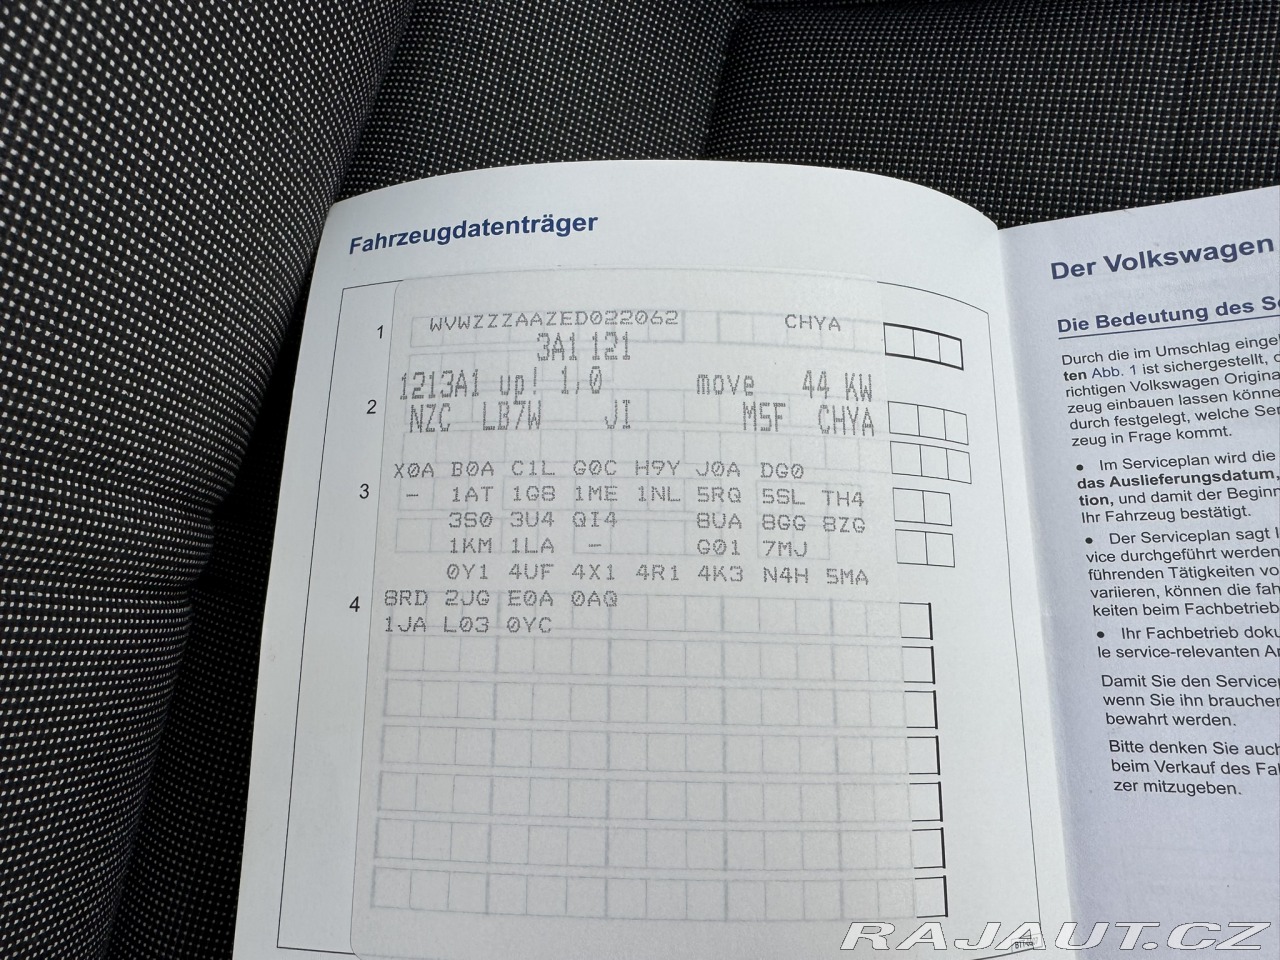 Fahrzeugdatenträger
1 WVWZZZAAZED022062 CHYA
3A1 121
1213A1 up! 1,0 move 44 KW
2 NZC LB7W JI M5F CHYA
X0A B0A C1L G0C H9Y J0A DG0
3 - 1AT 1G8 1ME 1NL 5RQ 5SL TH4
3S0 3U4 QI4 8UA 8GG 8ZG
1KM 1LA - G01 7MJ
0Y1 4UF 4X1 4R1 4K3 N4H 5MA
4 8RD 2JG E0A 0AQ
1JA L03 0YC
Der Volkswagen
Die Bedeutung des Se
Durch die im Umschlag eingel
ten Abb. 1 ist sichergestellt, d
richtigen Volkswagen Origina
zeug einbauen lassen könne
durch festgelegt, welche Ser
zeug in Frage kommt.
● Im Serviceplan wird die
das Auslieferungsdatum,
tion, und damit der Beginn
Ihr Fahrzeug bestätigt.
● Der Serviceplan sagt I
vice durchgeführt werden
führenden Tätigkeiten vo
variieren, können die fah
keiten beim Fachbetrieb
● Ihr Fachbetrieb doku
le service-relevanten Ar
Damit Sie den Servicep
wenn Sie ihn braucher
bewahrt werden.
Bitte denken Sie auch
beim Verkauf des Fah
zer mitzugeben.
RAJAUT.CZ